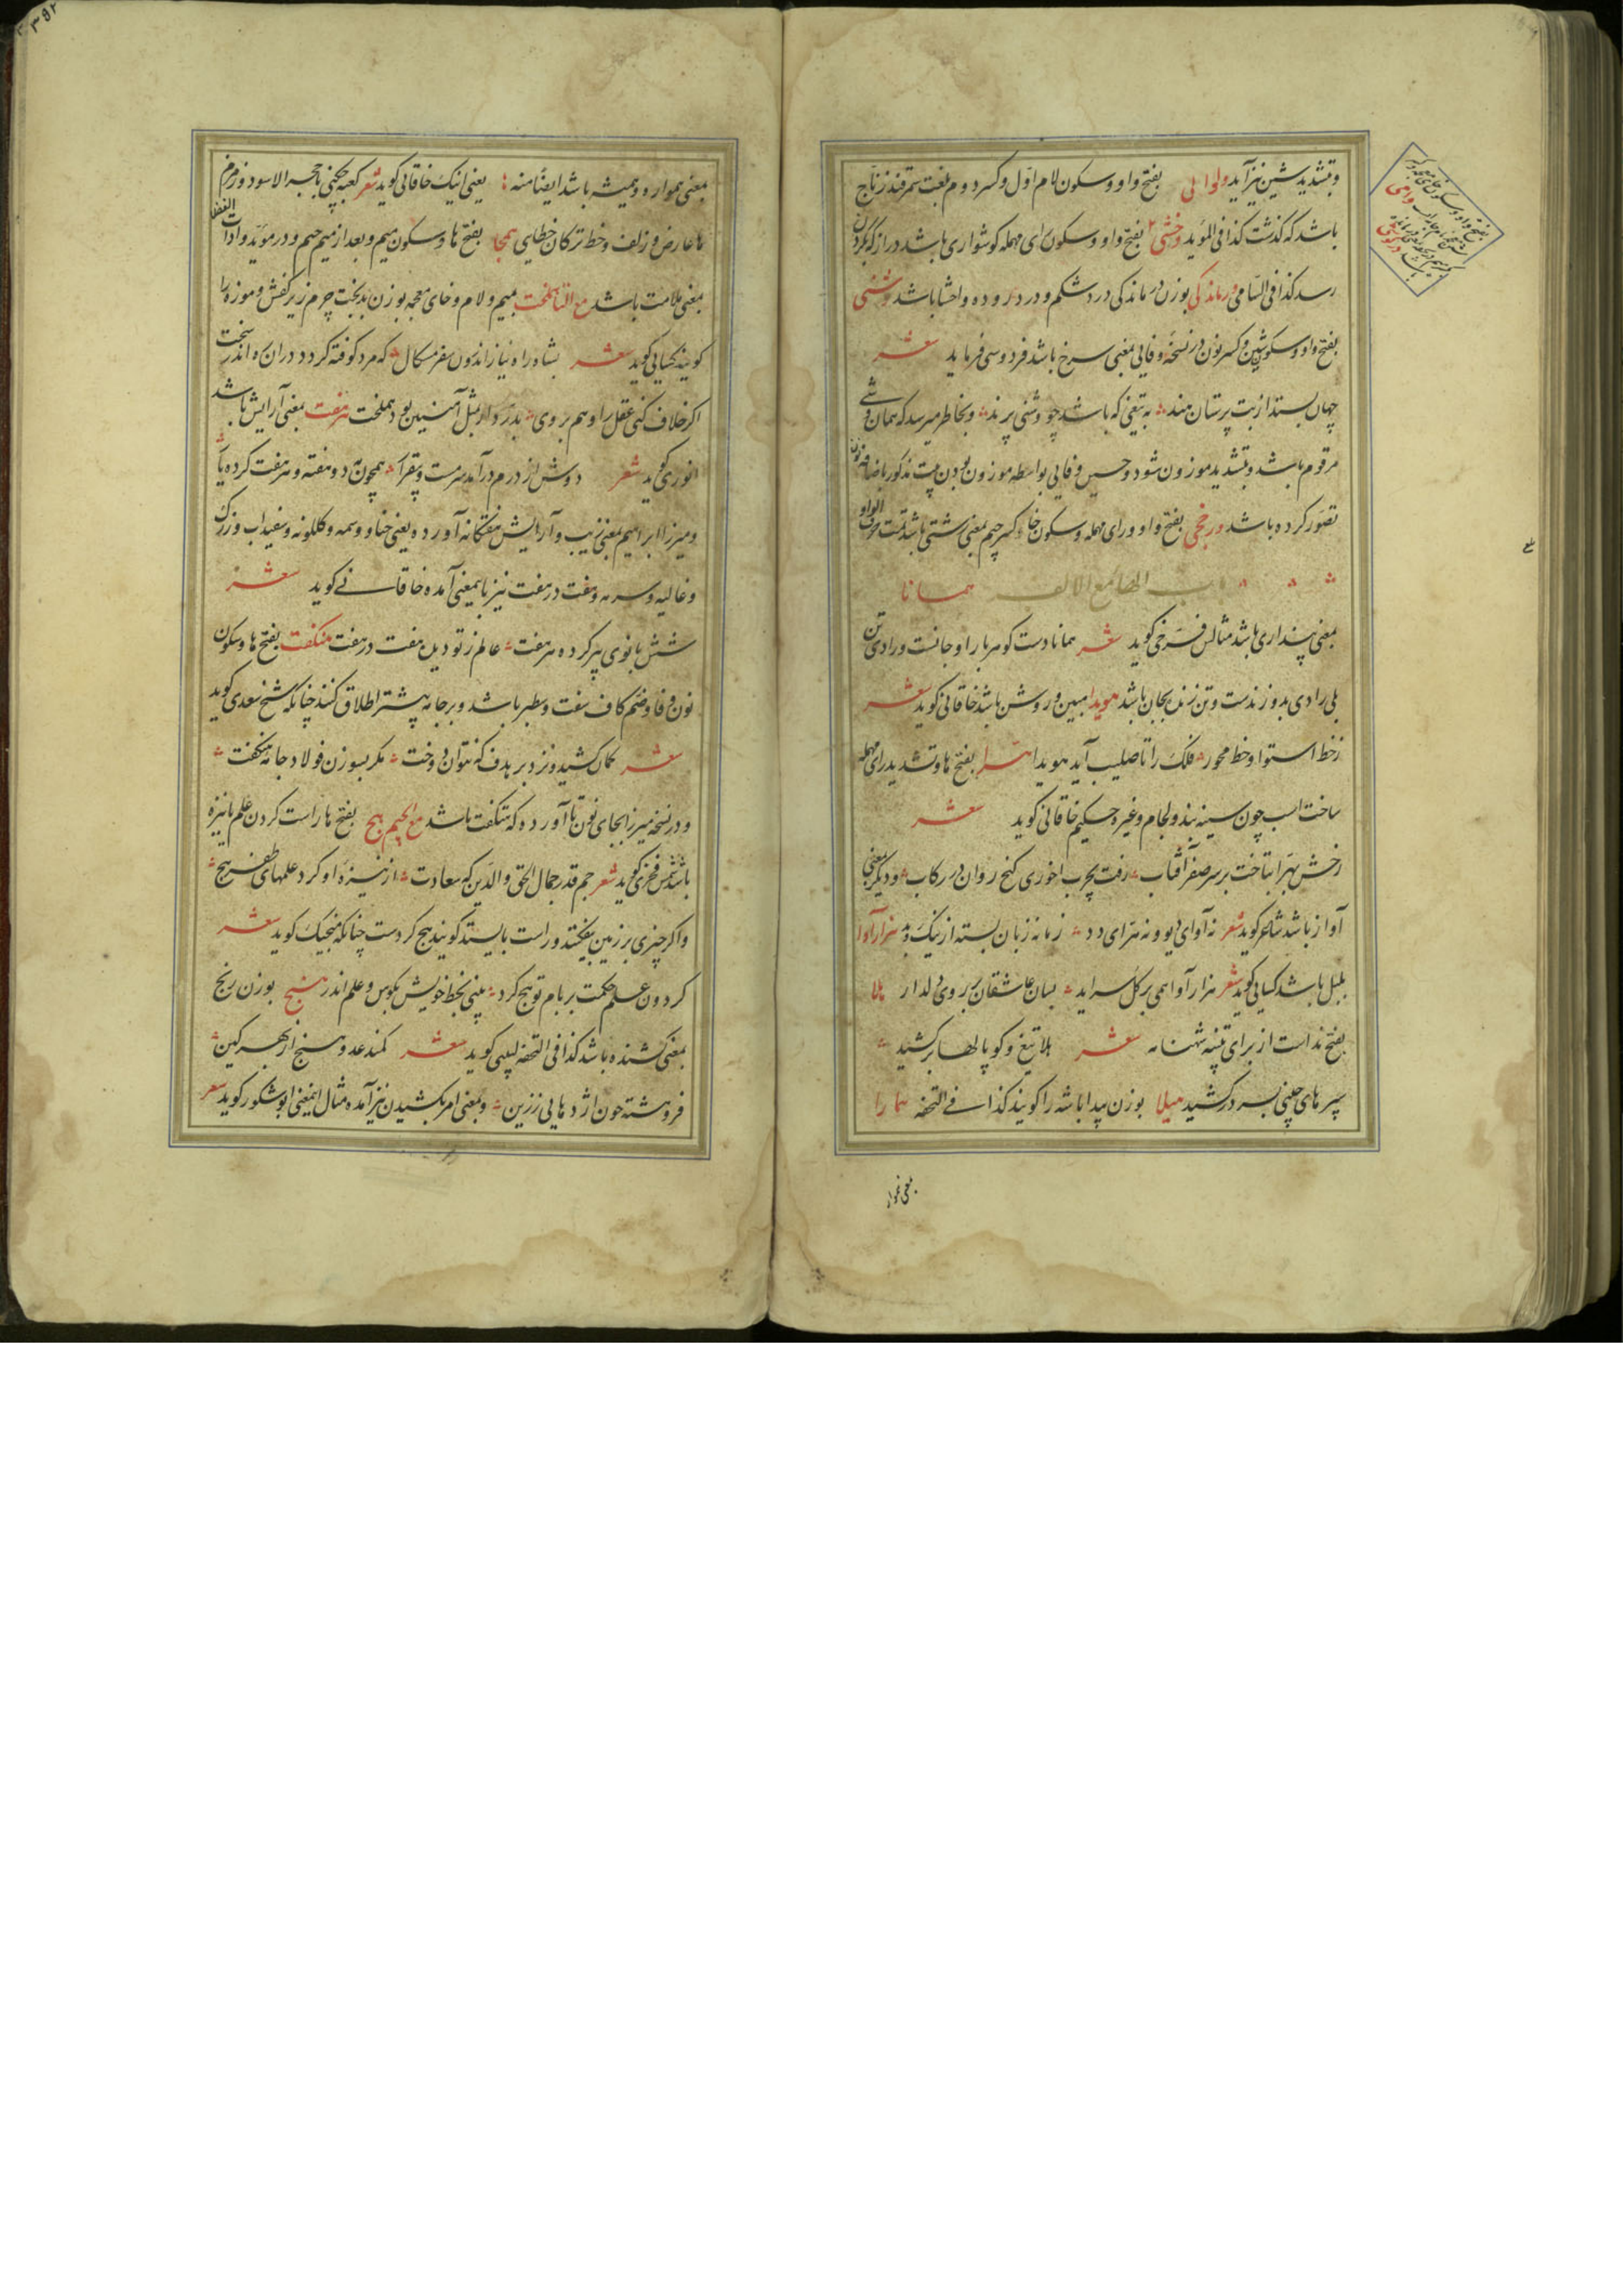 وبتشدید شین نیز آید ولوالی بفتح واو و سکون لام اول و کسر دوم بلغت سمرقند زناج
باشد که گذشت کذا فی المؤید وخشی بفتح واو و سکون رای مهمله گوشواری باشد دراز که بگردن
رسد کذا فی السامی ورماندکی بوزن درماندکی درد شکم و درد روده و احشا باشد وشنی
بفتح واو و سکون شین و کسر نون در نسخه وفایی بمعنی سرخ باشد فردوسی فرماید شعر
جهان بستد از بت پرستان هند به تیغی که باشد چو وشنی پرند و بخاطر میرسد که همان وشی
مرقوم باشد و بتشدید موزون شود و حسین وفایی بواسطه موزون بودن بیت مذکور باضافه نون
تصور کرده باشد ورخجی بفتح واو و رای مهمله و سکون خا و کسر جیم بمعنی زشتی باشد تمت حرف الواو
باب الهاء مع الالف همانا
بمعنی پنداری باشد مثالش فرخی گوید شعر همانا دست گوهربار او جانست و رادی تن
بلی رادی بدو زندست و تن زنده بجان باشد هویدا مبین و روشن باشد خاقانی گوید شعر
ز خط استوا و خط محور فلک را تا صلیب آید هویدا هرا بفتح ها و تشدید رای مهمله
ساخت اسب چون سینه بند و لجام و غیره حکیم خاقانی گوید شعر
رخش بهرا بتاخت بر سر صفر آفتاب رفت بچرب آخوری گنج روان در رکاب و دیگر بمعنی
آواز باشد شاعر گوید شعر نه آوای دیو و نه هرای دد زمانه زبان بسته از نیک و بد هزارآوا
بلبل باشد کسایی گوید شعر هزارآوا همی بر گل سراید بسان عاشقان بر روی دلدار هلا
بفتح ندا است از برای تنبیه شهنامه شعر هلا تیغ و کوپالها برکشید
سپرهای چینی بسر درکشید هیلا بوزن پیدا باشه را گویند کذا فی التحفه همارا
بمعنی هموار
بمعنی هموار و همیشه باشد ایضا منه ها یعنی اینک خاقانی گوید شعر کعبه چکنی با حجر الاسود و زمزم
ها عارض و زلف و خط ترکان خطایی همجا بفتح ها و سکون میم و بعد از میم جیم و در مؤید و ادات الفضلا
بمعنی ملامت باشد مع التا هملخت بمیم و لام و خای معجمه بوزن بدبخت چرم زیر کفش و موزه را
گویند کسایی گوید شعر بشاه‌راه نیاز اندرون سفر مسکال که مرد کوفته گردد در آن ره اندر سخت
اگر خلاف کنی عقل را و هم بروی بدرد ار بمثل آهنین بود هملخت هرهفت بمعنی آرایش باشد
انوری گوید شعر دوش از درم درآمد سرمست و بیقرار همچون مه دو هفته و هر هفت کرده یار
و میرزا ابراهیم بمعنی زیب و آرایش هفتگانه آورده یعنی حنا و وسمه و گلگونه و سفیداب و زرک
و غالیه و سرمه و هفت در هفت نیز باینمعنی آمده خاقانی گوید شعر
شش بانوی پیر کرده هرهفت عالم ز تو دیده هفت در هفت هنگفت بفتح ها و سکون
نون و فا و ضم کاف سفت و سطبر باشد و بر جامه بیشتر اطلاق کنند چنانکه شیخ سعدی گوید
شعر کمان کشید و نزد بر هدف که نتوان دوخت مگر بسوزن فولاد جامه هنگفت
و در نسخه میرزا بجای نون تا آورده که هتگفت باشد مع الجیم هج بفتح ها راست کردن علم یا نیزه
باشد شمس فخری گوید شعر جم قدر جمال الحق و الدین که سعادت از نیزه او کرد علمهای ظفر هج
و اگر چیزی بر زمین بیفکنند و راست بایستد گویند هج کردست چنانکه منجیک گوید شعر
گردون علم حکمت بر بام تو هج کرد بینی بخط خویش بکوس و علم اندر هنج بوزن رنج
بمعنی کشنده باشد کذا فی التحفه لبیبی گوید شعر کمند عدو هنج از بهر کین
فروهشته چون اژدهایی ز زین و بمعنی امر بکشیدن نیز آمده مثال اینمعنی ابوشکور گوید شعر